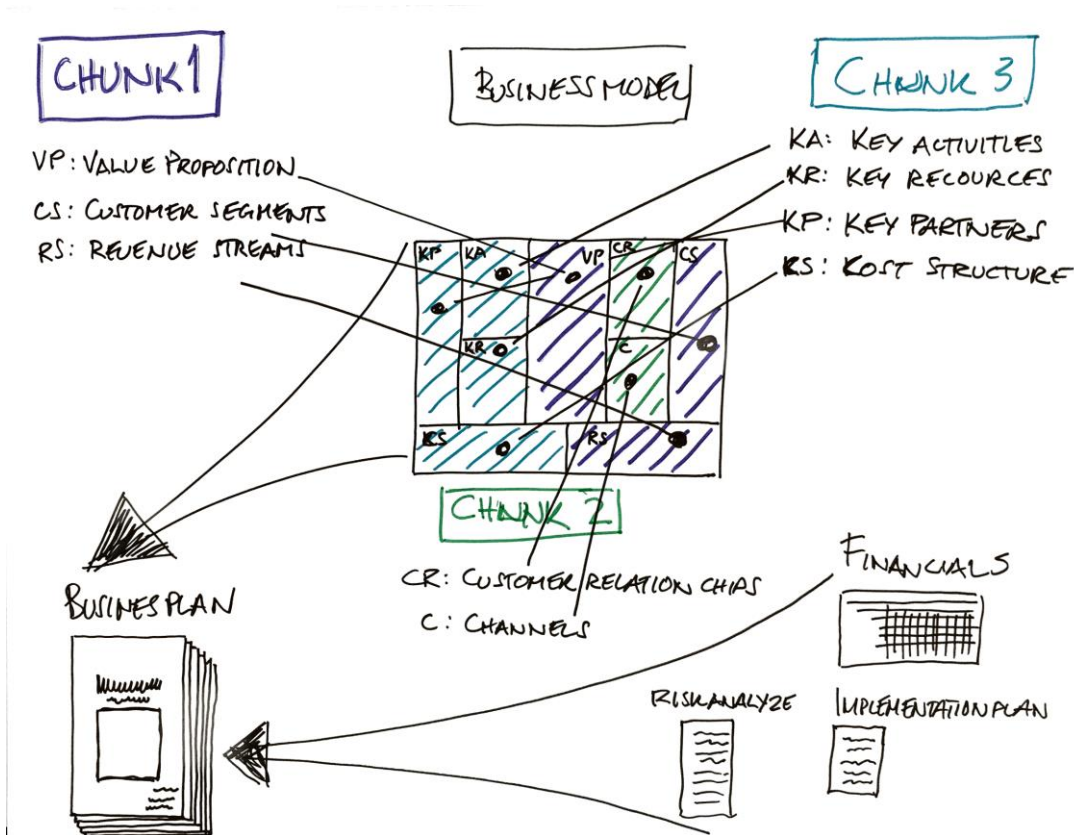 CHUNK 1
BUSINESS MODEL
CHUNK 3
VP: VALUE PROPOSITION
CS: CUSTOMER SEGMENTS
RS: REVENUE STREAMS
KA: KEY ACTIVITLES
KR: KEY RECOURCES
KP: KEY PARTNERS
KS: KOST STRUCTURE
KP
KA
VP
CR
CS
KR
C
KS
RS
CHUNK 2
CR: CUSTOMER RELATION CHIPS
C: CHANNELS
BUSINESPLAN
FINANCIALS
RISKANALYZE
IMPLEMENTATIONPLAN